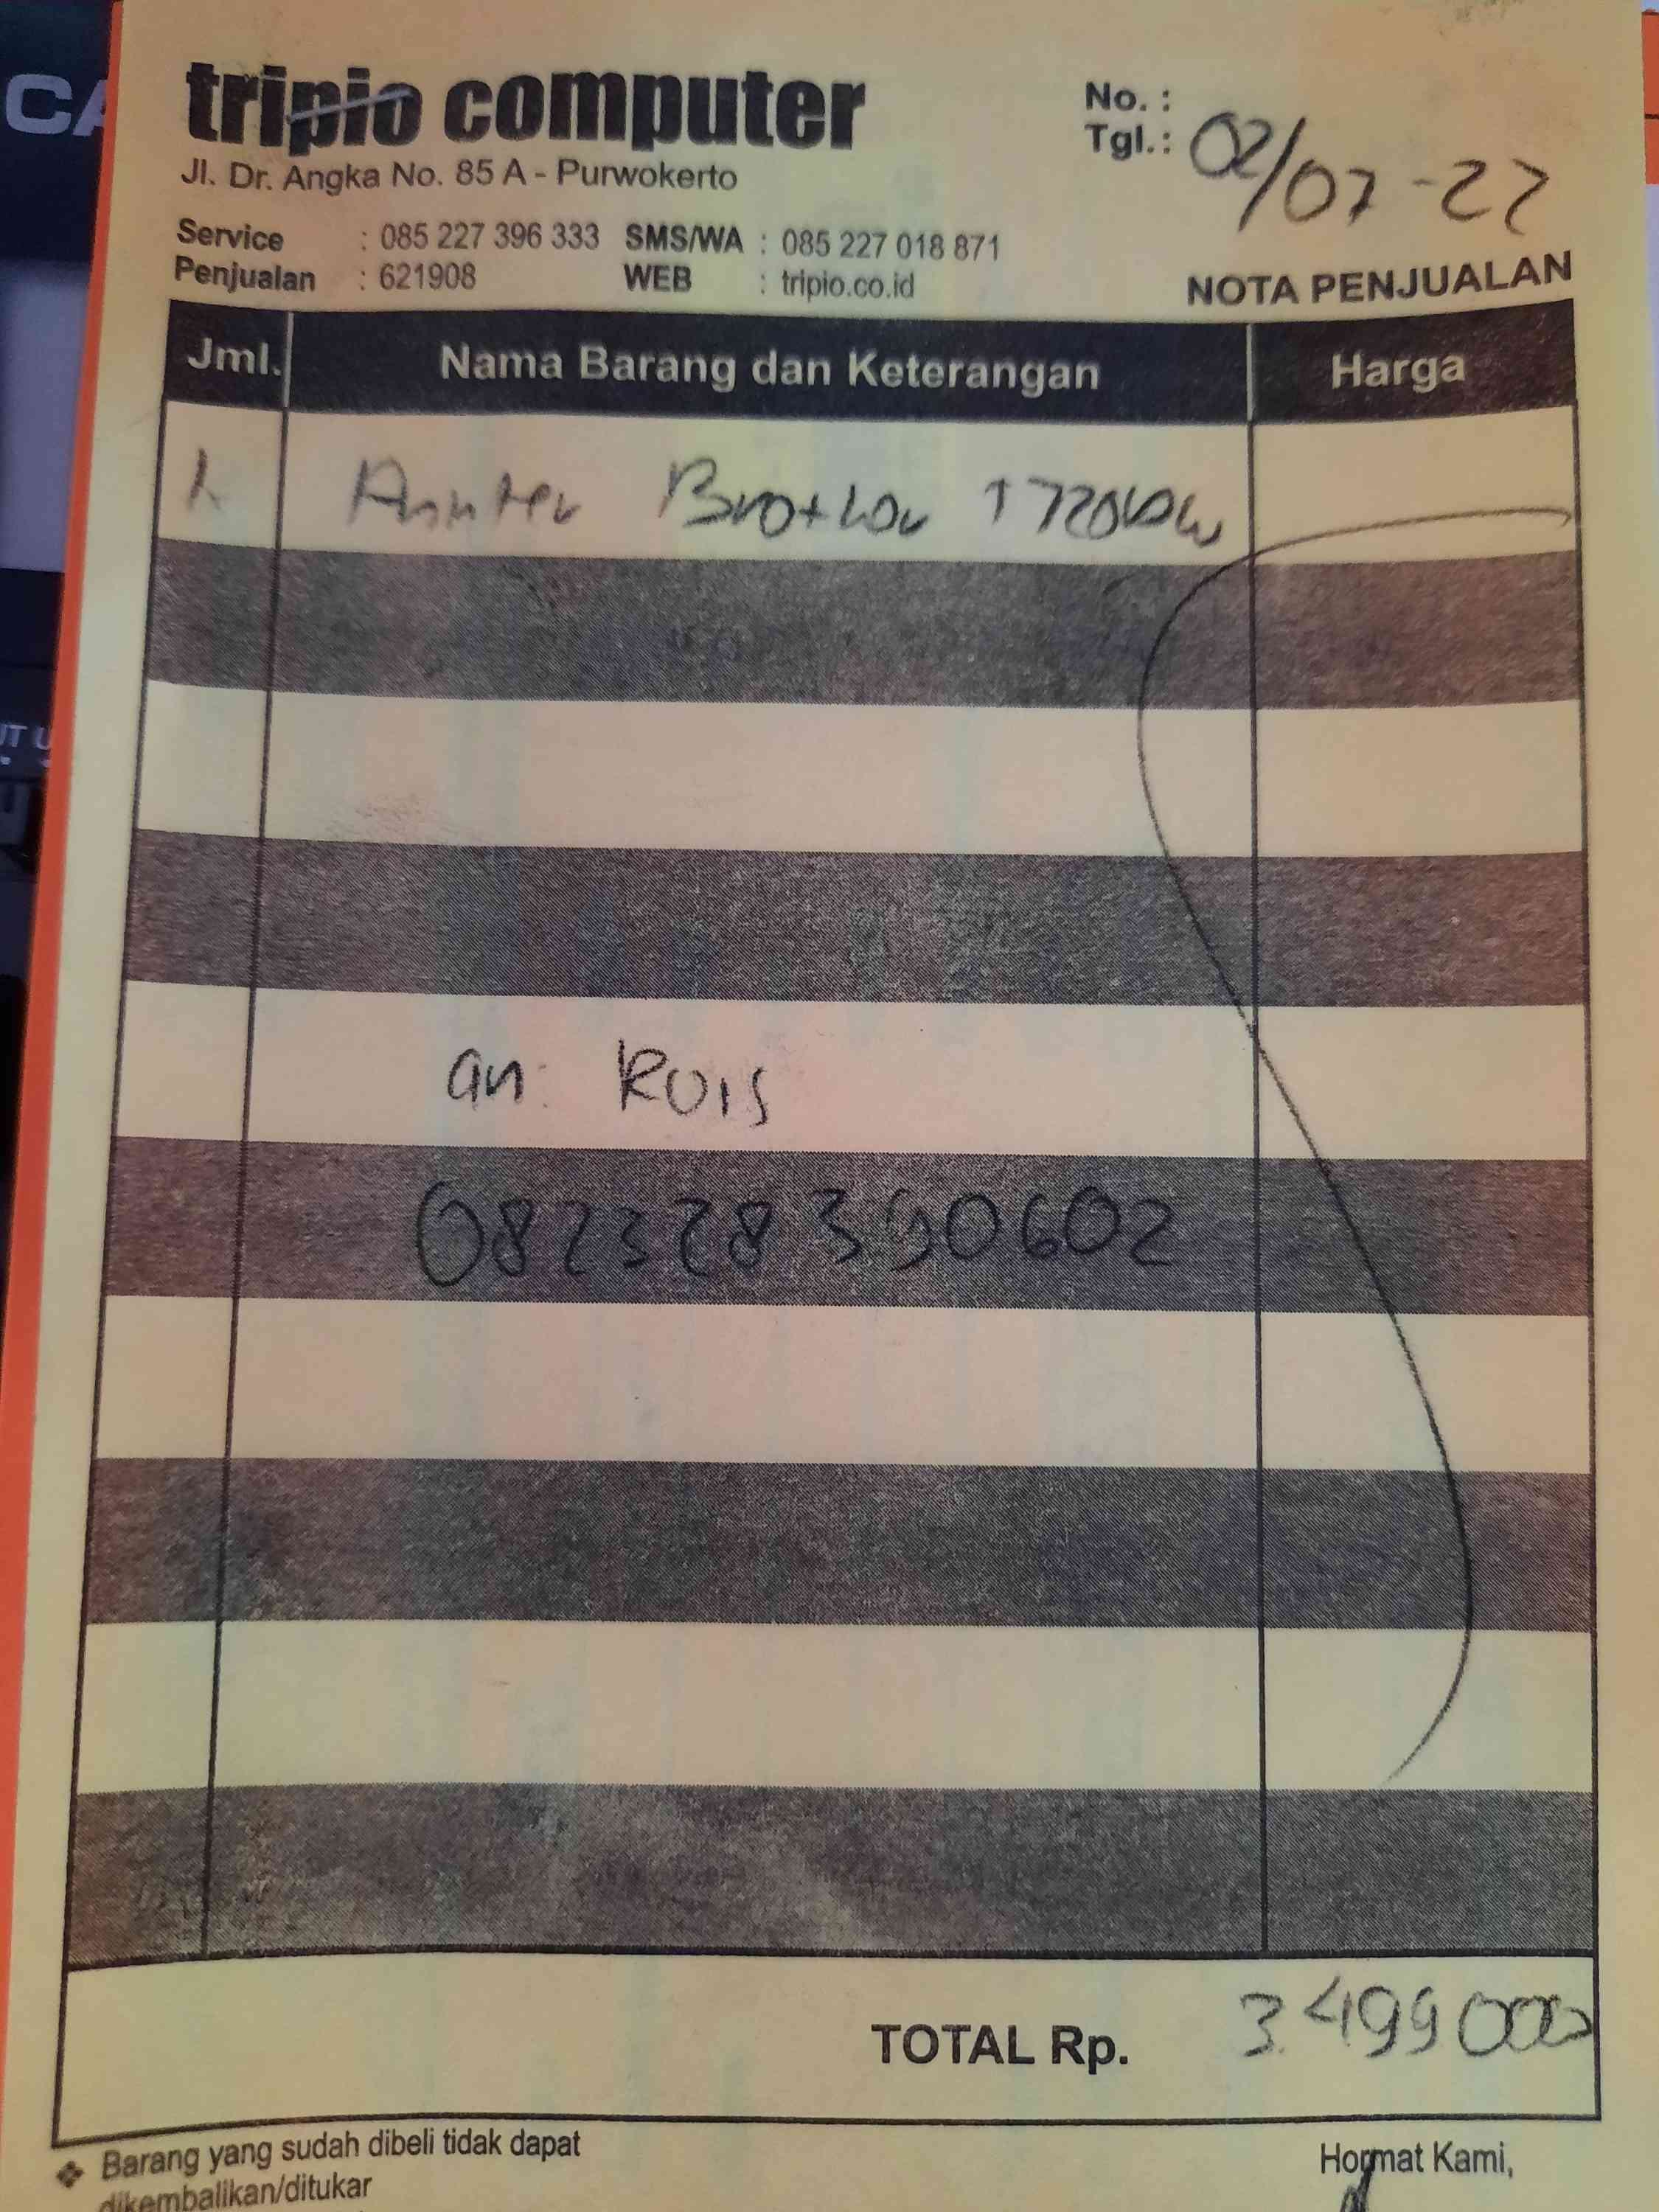 tripio computer
Jl. Dr. Angka No. 85 A - Purwokerto
Service : 085 227 396 333 SMS/WA : 085 227 018 871
Penjualan : 621908 WEB : tripio.co.id
No. :
Tgl.: 02/07-22
NOTA PENJUALAN
Jml. Nama Barang dan Keterangan Harga
1 Printer Brother T720DW
an: RUIS
082328390602
TOTAL Rp. 3.499000
Barang yang sudah dibeli tidak dapat
dikembalikan/ditukar
Hormat Kami,
CA
UT U